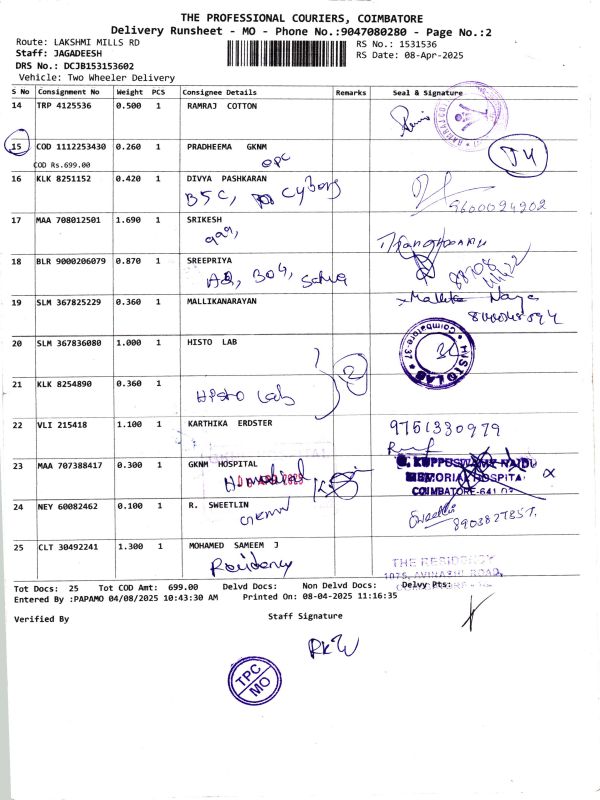 THE PROFESSIONAL COURIERS, COIMBATORE
Delivery Runsheet - MO - Phone No.:9047080280 - Page No.:2
Route: LAKSHMI MILLS RD
RS No.: 1531536
Staff: JAGADEESH
RS Date: 08-Apr-2025
DRS No.: DCJB153153602
Vehicle: Two Wheeler Delivery
S No Consignment No Weight PCS Consignee Details Remarks Seal & Signature
14 TRP 4125536 0.500 1 RAMRAJ COTTON
15 COD 1112253430 0.260 1 PRADHEEMA GKNM
COD Rs.699.00
OPC
16 KLK 8251152 0.420 1 DIVYA PASHKARAN
BSC, Cyborg
9600094902
17 MAA 708012501 1.690 1 SRIKESH
18 BLR 9000206079 0.870 1 SREEPRIYA
304,
19 SLM 367825229 0.360 1 MALLIKANARAYAN
Mallika
20 SLM 367836080 1.000 1 HISTO LAB
HISTO LAB
Coimbatore-37
2
21 KLK 8254890 0.360 1
Histo Lab
22 VLI 215418 1.100 1 KARTHIKA ERDSTER
9751330979
23 MAA 707388417 0.300 1 GKNM HOSPITAL
G. KUPPUSWAMY NAIDU
MEMORIAL HOSPITAL
COIMBATORE-641 037
24 NEY 60082462 0.100 1 R. SWEETLIN
GKNM
Sweetlin
8903827857.
25 CLT 30492241 1.300 1 MOHAMED SAMEEM J
Residency
THE RESIDENCY
1076, AVINASHI ROAD,
Tot Docs: 25 Tot COD Amt: 699.00 Delvd Docs: Non Delvd Docs: Delvy Pts:
Entered By :PAPAMO 04/08/2025 10:43:30 AM Printed On: 08-04-2025 11:16:35
Verified By
Staff Signature
TPC
MO